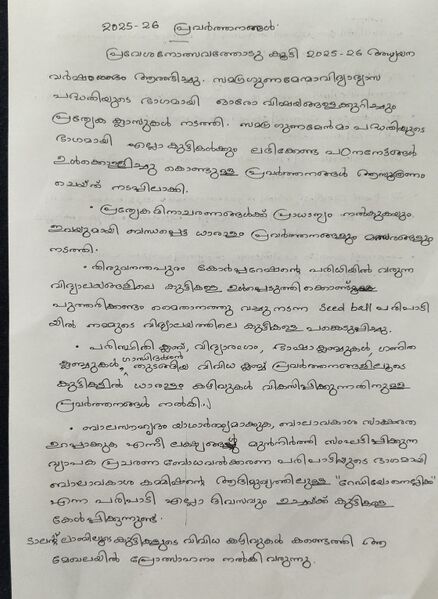 2025-26 പ്രവർത്തനങ്ങൾ
പ്രവേശനോത്സവത്തോടു കൂടി 2025-26 അധ്യയന
വർഷം ആരംഭിച്ചു. സമഗ്രഗുണമേന്മാവിദ്യാഭ്യാസ
പദ്ധതിയുടെ ഭാഗമായി ഓരോ വിഷയങ്ങളെക്കുറിച്ചും
പ്രത്യേക ക്ലാസുകൾ നടത്തി. സമഗ്ര ഗുണമേൻമാ പദ്ധതിയുടെ
ഭാഗമായി എല്ലാ കുട്ടികൾക്കും ലഭിക്കേണ്ട പഠനനേട്ടങ്ങൾ
ഉൾക്കൊള്ളിച്ചു കൊണ്ടുള്ള പ്രവർത്തനങ്ങൾ ആസൂത്രണം
ചെയ്ത് നടപ്പിലാക്കി.
• പ്രത്യേക ദിനാചരണങ്ങൾക്ക് പ്രാധാന്യം നൽകുകയും
ഇവയുമായി ബന്ധപ്പെട്ട ധാരാളം പ്രവർത്തനങ്ങളും മത്സരങ്ങളും
നടത്തി.
• തിരുവനന്തപുരം കോർപ്പറേഷന്റെ പരിധിയിൽ വരുന്ന
വിദ്യാലയങ്ങളിലെ കുട്ടികളെ ഉൾപ്പെടുത്തി കൊണ്ട്
പുത്തരിക്കണ്ടം മൈതാനത്തു വച്ചു നടന്ന Seed ball പരിപാടി
യിൽ നമ്മുടെ വിദ്യാലയത്തിലെ കുട്ടികളെ പങ്കെടുപ്പിച്ചു.
• പരിസ്ഥിതി ക്ലബ്, വിദ്യാരംഗം, ഭാഷാക്ലബ്ബുകൾ, ഗണിത
ക്ലബ്ബുകൾ, ഗാന്ധിദർശൻ തുടങ്ങിയ വിവിധ ക്ലബ് പ്രവർത്തനങ്ങളിലൂടെ
കുട്ടികളിൽ ധാരാളം കഴിവുകൾ വികസിപ്പിക്കുന്നതിനുള്ള
പ്രവർത്തനങ്ങൾ നൽകി.
• ബാലസൗഹൃദം യാഥാർത്ഥ്യമാക്കുക, ബാലാവകാശ സാക്ഷരത
ഉറപ്പാക്കുക എന്നീ ലക്ഷ്യങ്ങളെ മുൻനിർത്തി സംഘടിപ്പിക്കുന്ന
വ്യാപക പ്രചരണ ബോധവൽക്കരണ പരിപാടിയുടെ ഭാഗമായി
ബാലാവകാശ കമ്മിഷന്റെ ആഭിമുഖ്യത്തിലുള്ള "റേഡിയോ നെല്ലിക്ക"
എന്ന പരിപാടി എല്ലാ ദിവസവും ഉച്ചയ്ക്ക് കുട്ടികളെ
കേൾപ്പിക്കുന്നുണ്ട്.
ടാലന്റ് ലാബിലൂടെ കുട്ടികളുടെ വിവിധ കഴിവുകൾ കണ്ടെത്തി ആ
മേഖലയിൽ പ്രോത്സാഹനം നൽകി വരുന്നു.